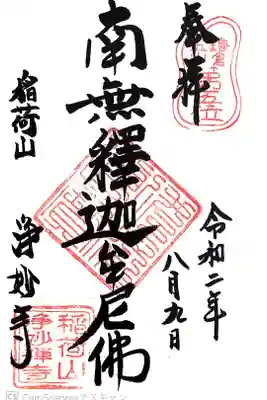 奉拝
令和二年
八月九日
南無釋迦牟尼佛
稲荷山
浄妙寺
稲荷山
浄妙禅寺
CS CamScannerでスキャン